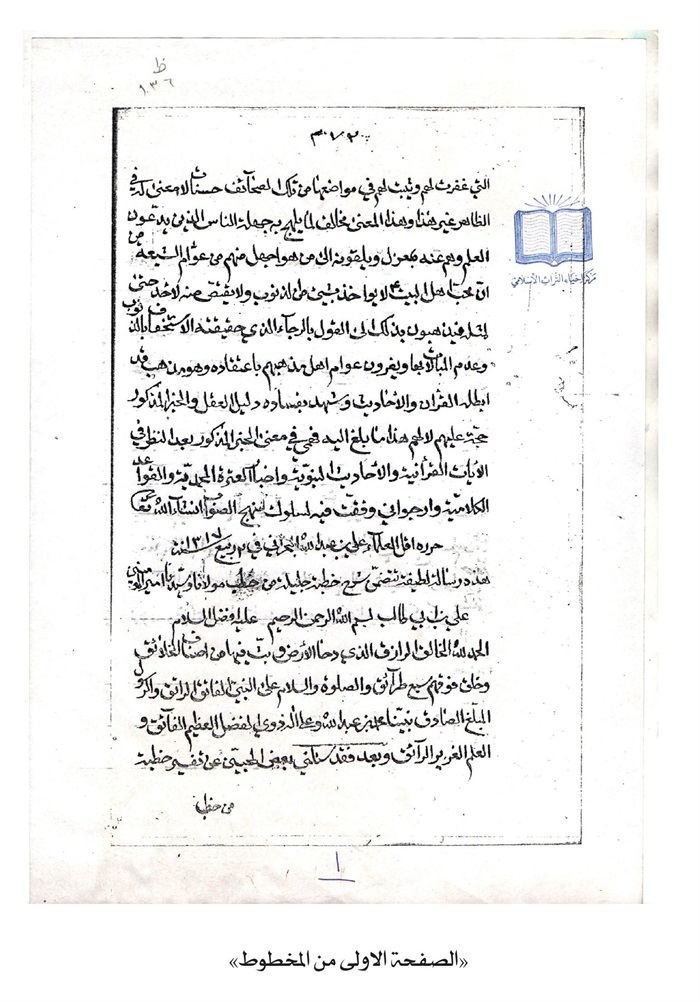 ظ
١٣٦
التي غفرت لهم ويثبت لهم في مواضعها من تلك الصحائف حسنات لا معنى له في
الظاهر غير هذا وهذا المعنى مخالف لما يلهج به جهلة الناس الذين يدعون
العلم وهم عنه بمعزل ويلقونه الى من هو اجهل منهم من عوام الشيعه من
ان محب اهل البيت لا يؤاخذ بشيئ من الذنوب ولا يقتص منه لاحد حتى
فيذهبون بذلك الى القول بالرجاء الذي حقيقته الاستخفاف بالذنوب
وعدم المبالات بها ويغرون عوام اهل مذهبهم باعتقاده وهو مذهب قد
ابطله القرآن والأحاديث وشهد بفساده دليل العقل والخبر المذكور
حجة عليهم لا لهم هذا ما بلغ اليه فهمي في معنى الخبر المذكور بعد النظر في
الآيات القرآنية والأحاديث النبوية والعترة المحمدية والقواعد
الكلامية وارجو اني وفقت فيه لسلوك منهج الصواب انشاء الله تعالى
حرره اقل العلماء علي بن عبد الله البحراني في ربيع سنة ١٣١٧
هذه رسالة لطيفة تتضمن شرح خطبة جليلة من خطب مولانا وسيدنا امير المؤمنين
علي بن ابي طالب بسم الله الرحمن الرحيم عليه افضل السلام
الحمد لله الخالق الرازق الذي دحا الأرض وبث فيها من اصناف الخلائق
وخلق فوقهم سبع طرائق والصلوة والسلام على النبي الفائق الرائق والرسول
المبلغ الصادق نبينا محمد بن عبد الله وعلى اله ذوي الفضل العظيم الفائق و
العلم الغزير الرائق وبعد فقد سئلني بعض المحبين عن تفسير خطبة
من خطب
مركز احياء التراث الاسلامي
١
«الصفحة الاولى من المخطوط»